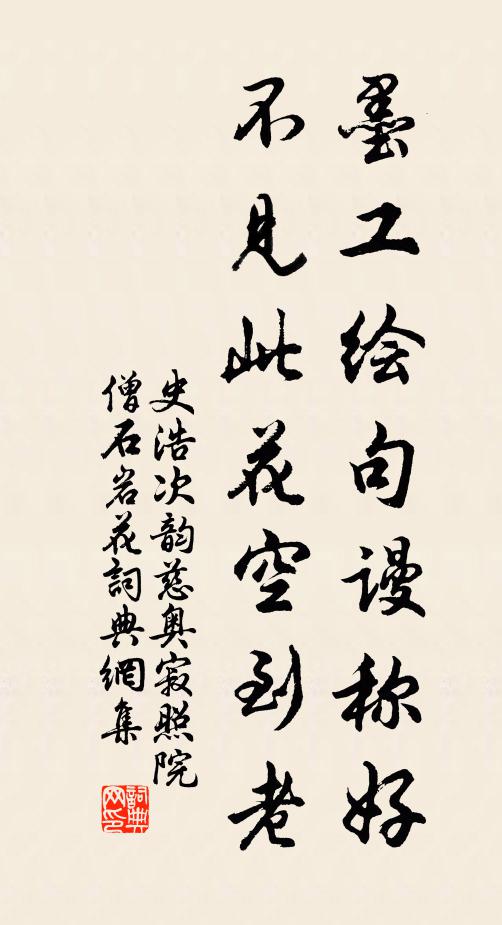 墨工绘句谩称好
不见此花空到老
史浩次韵慈奥寂照院
僧石岩花詞典網集
詞典网印